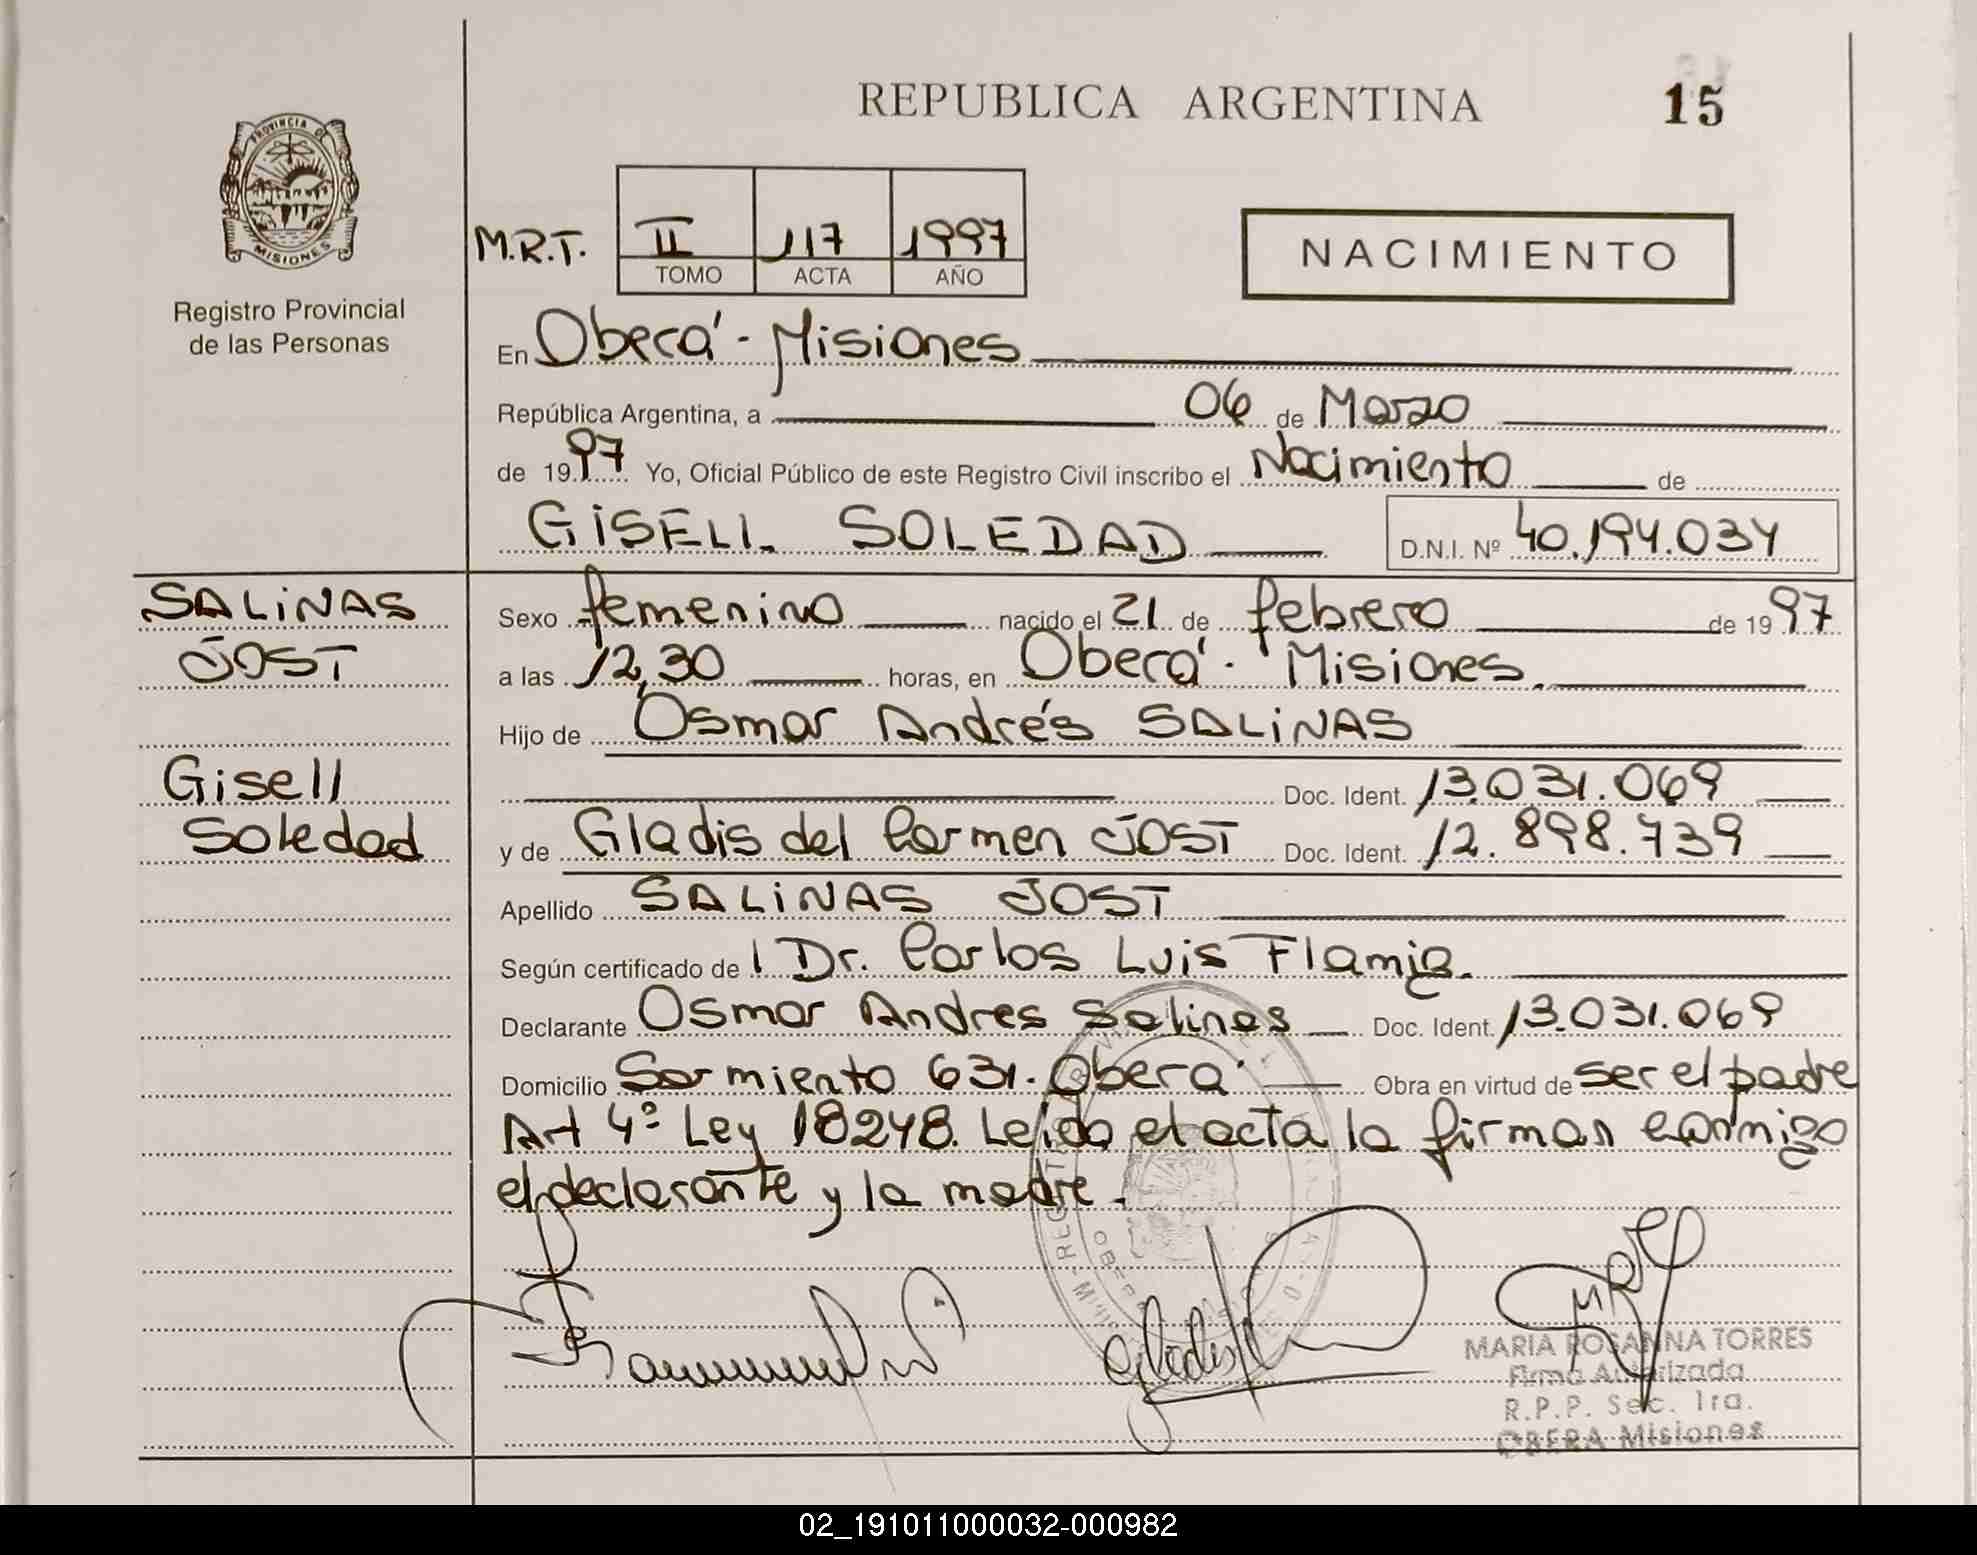 REPUBLICA ARGENTINA
15
PROVINCIA DE
MISIONES
Registro Provincial
de las Personas
M.R.T.
II 117 1997
TOMO ACTA AÑO
NACIMIENTO
En Oberá - Misiones
República Argentina, a 06 de Marzo
de 1997 Yo, Oficial Público de este Registro Civil inscribo el Nacimiento de
GISELL SOLEDAD D.N.I. Nº 40.194.034
SALINAS
JOST
Gisell
Soledad
Sexo femenino nacido el 21 de febrero de 1997
a las 12,30 horas, en Oberá - Misiones.
Hijo de Osmar Andrés SALINAS
Doc. Ident. 13.031.069
y de Gladis del Carmen JOST Doc. Ident. 12.898.739
Apellido SALINAS JOST
Según certificado de Dr. Carlos Luis
Declarante Osmar Andres Salinas Doc. Ident. 13.031.069
Domicilio Sarmiento 631. Oberá Obra en virtud de ser el padre
Art 4º Ley 18248. Leída el acta la firman conmigo
el declarante y la madre.
MARIA ROSANNA TORRES
Firma Autorizada
R.P.P. Sec. 1ra.
OBERA Misiones
02_191011000032-000982